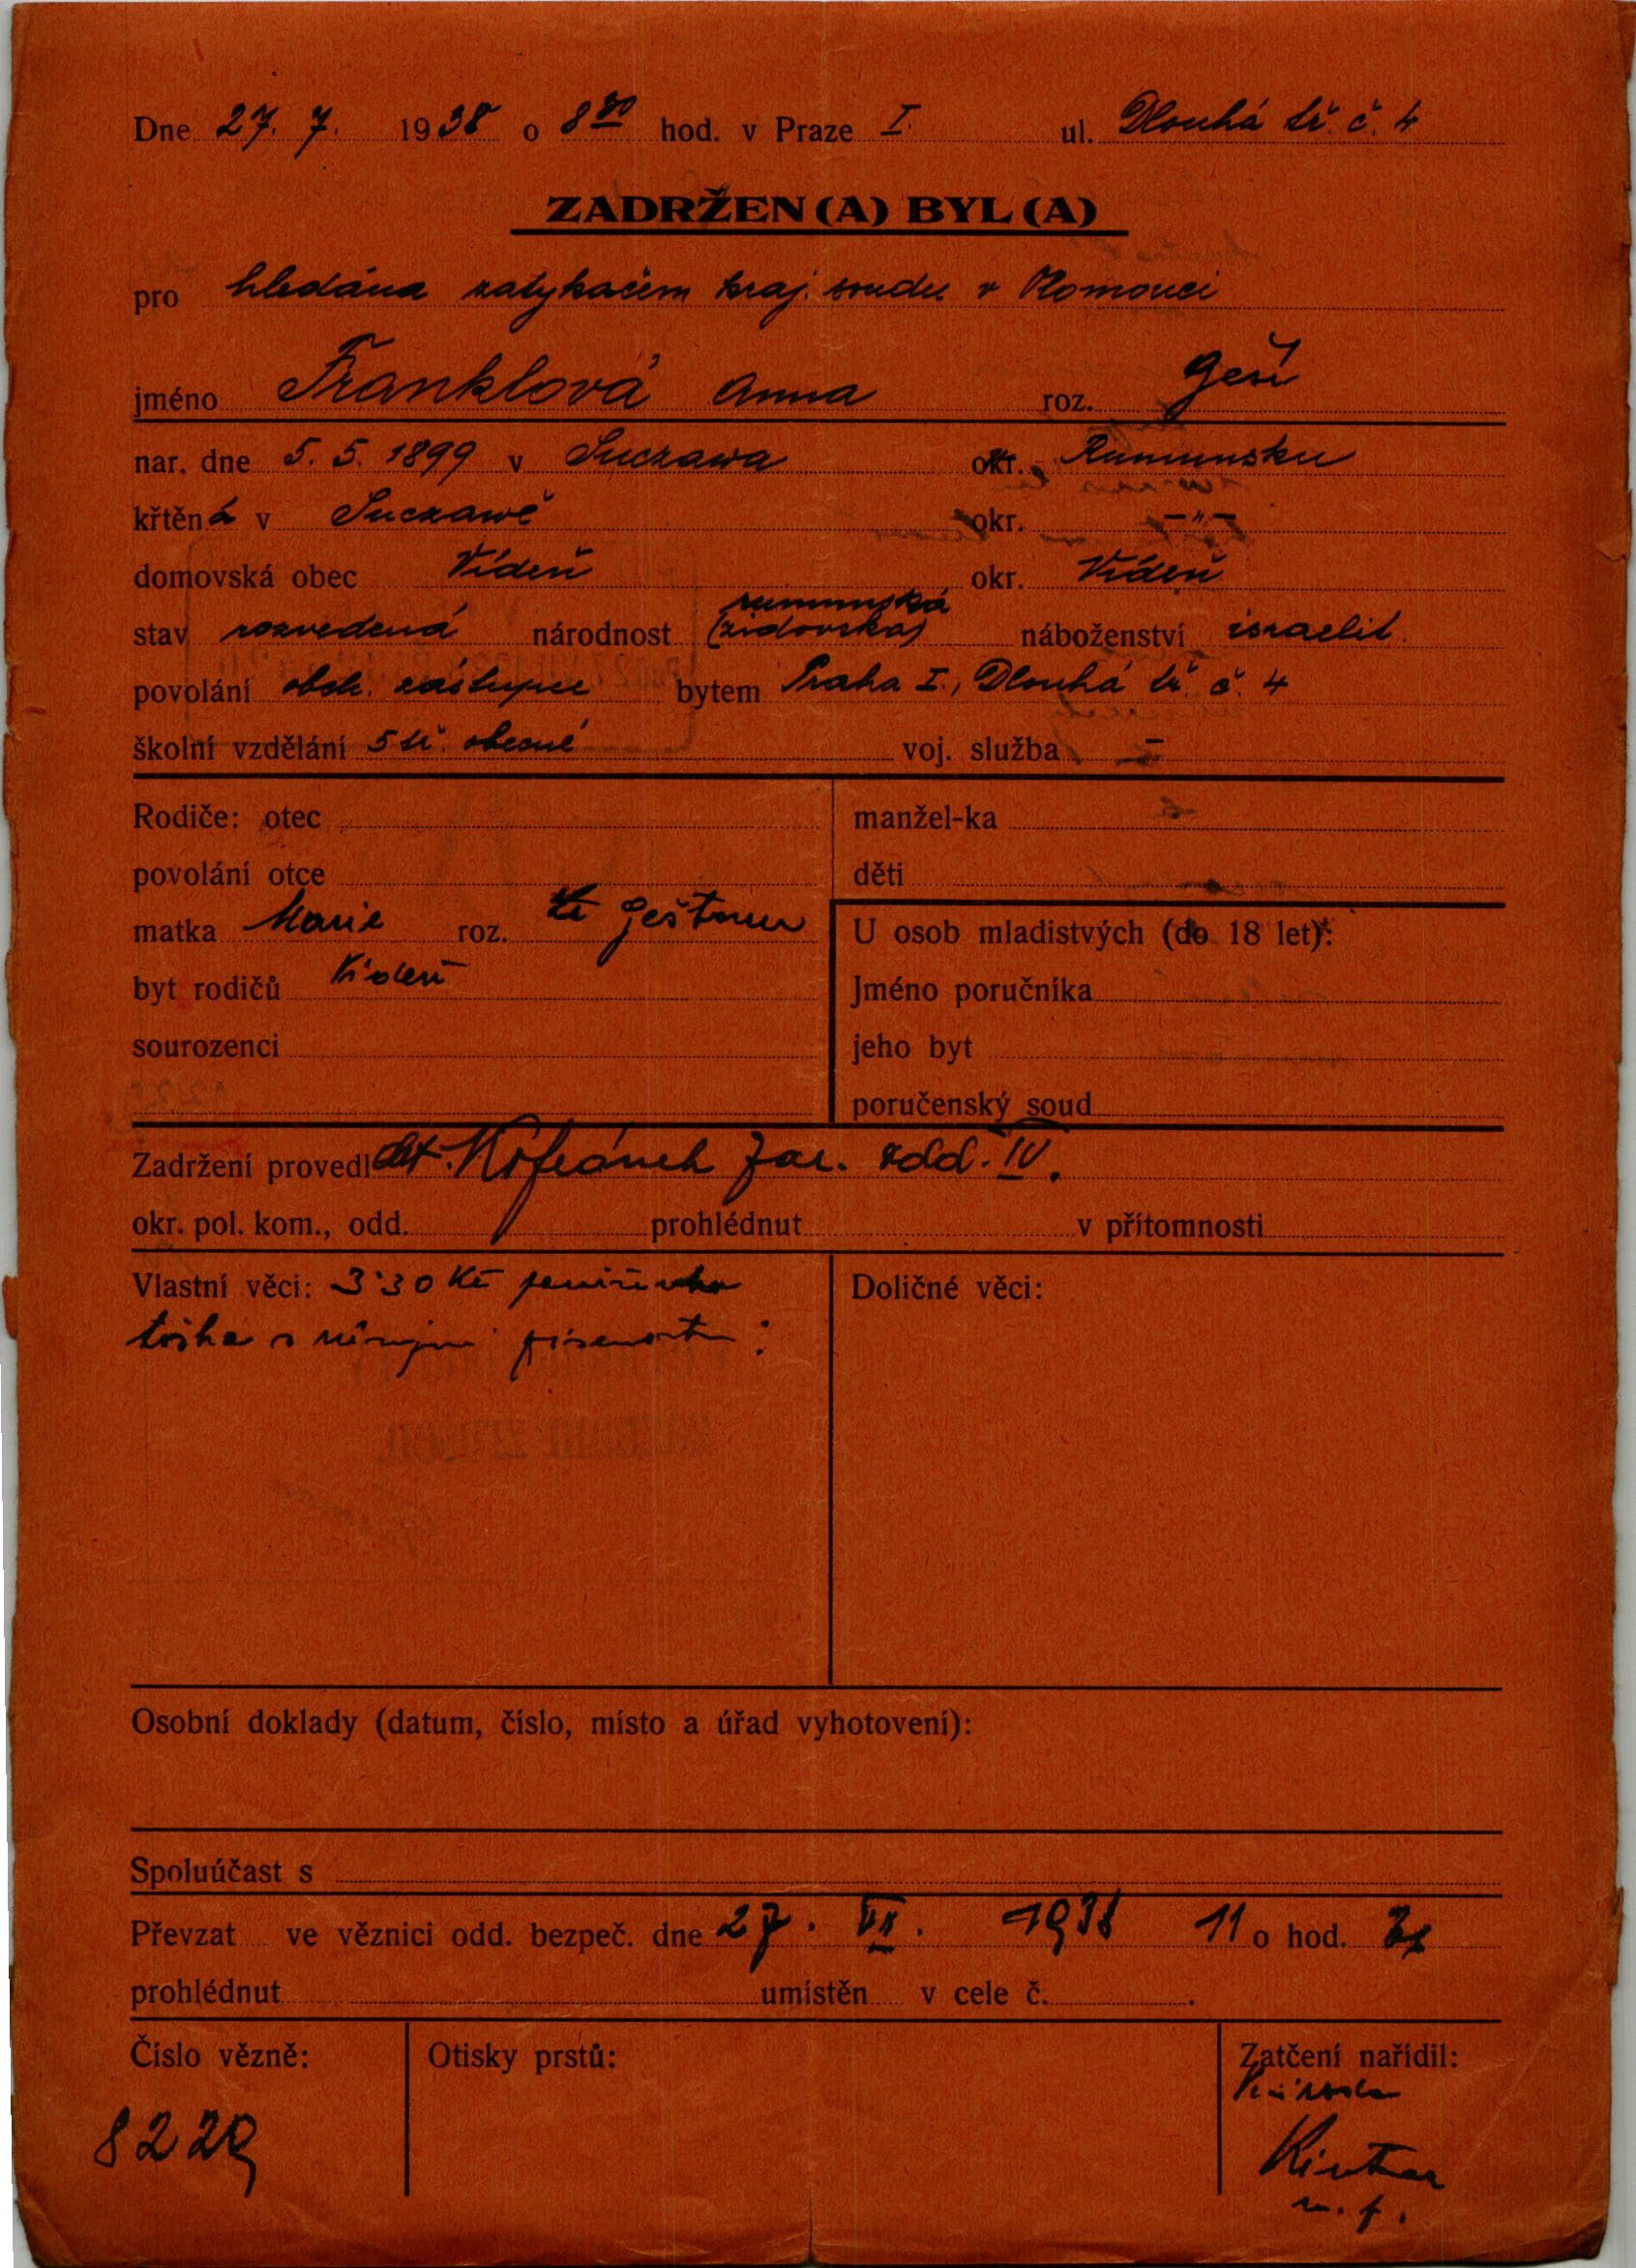 Dne 27. 7. 1938 o 8 hod. v Praze I. ul. Dlouhá tř. č. 4
ZADRŽEN(A) BYL(A)
pro hledána zatykačem kraj. soudu v Olomouci
jméno Franklová Anna roz.
nar. dne 5. 5. 1899 v Suczawa okr. Rumunsku
křtěná v Suczawě okr. –„–
domovská obec Vídeň okr. Vídeň
rumunská
stav rozvedená národnost (židovská) náboženství israelit.
povolání obch. zástupce bytem Praha I., Dlouhá tř. č. 4
školní vzdělání 5 tř. obecné voj. služba –
Rodiče: otec
manžel-ka
povolání otce
děti
matka Marie roz.
U osob mladistvých (do 18 let):
byt rodičů Vídeň
Jméno poručníka
sourozenci
jeho byt
poručenský soud
Zadržení provedl det. odd. IV.
okr. pol. kom., odd. prohlédnut v přítomnosti
Vlastní věci: 3·30 Kč
Doličné věci:
Osobní doklady (datum, číslo, místo a úřad vyhotovení):
Spoluúčast s
Převzat ve věznici odd. bezpeč. dne 27. VII. 1938 11 o hod.
prohlédnut umístěn v cele č.
Číslo vězně:
Otisky prstů:
Zatčení nařídil:
8229